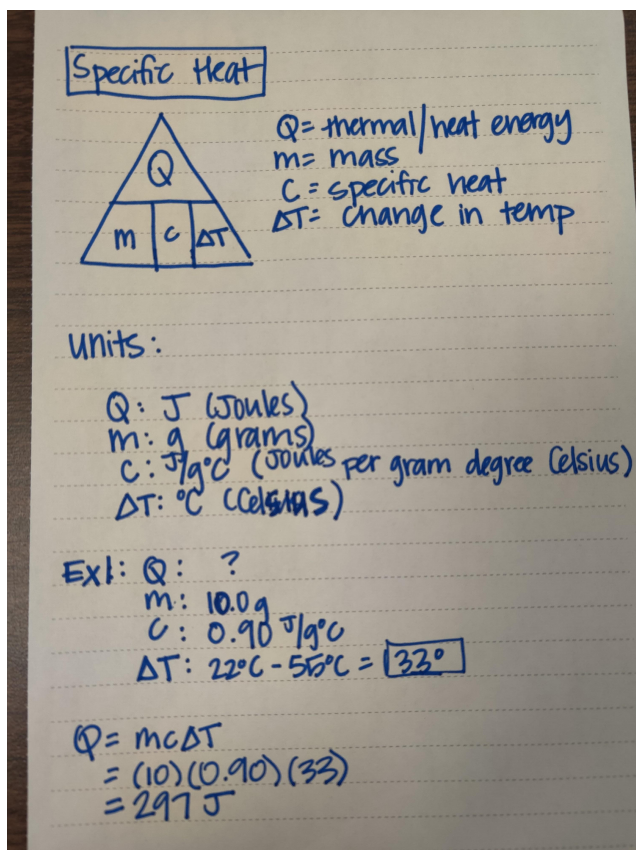 Specific Heat
Q
m c ΔT
Q= thermal/heat energy
m= mass
C = specific heat
ΔT= change in temp
Units:
Q: J (Joules)
m: g (grams)
C: J/g°C (Joules per gram degree Celsius)
ΔT: °C (Celsius)
Ex1: Q: ?
m: 10.0g
C: 0.90 J/g°C
ΔT: 22°C - 55°C = 33°
Q= mcΔT
= (10)(0.90)(33)
= 297 J